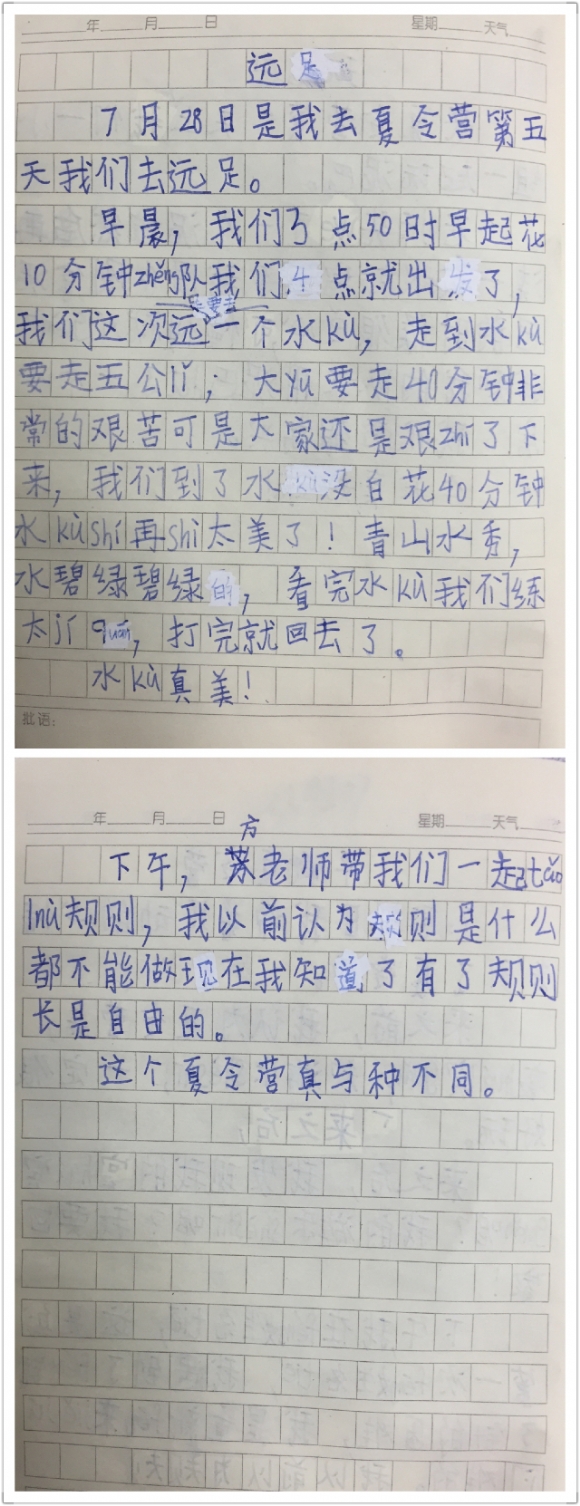 年 月 日 星期 天气
远足
7月28日是我去夏令营第五
天我们去远足。
早晨,我们3点50时早起花
10分钟zhěng队我们4点就出发了,
我们这次远一个水kù,走到水kù
要走五公lǐ;大yuē要走40分钟非
常的艰苦可是大家还是艰zhí了下
来,我们到了水没白花40分钟
水kùshí再shì太美了!青山水秀,
水碧绿碧绿的,看完水kù我们练
太jí quán,打完就回去了。
水kù真美!
批语:
年 月 日 星期 天气
方
下午,苏老师带我们一起tǎo
lùn规则,我以前认为规则是什么
都不能做现在我知道了有了规则
长是自由的。
这个夏令营真与种不同。